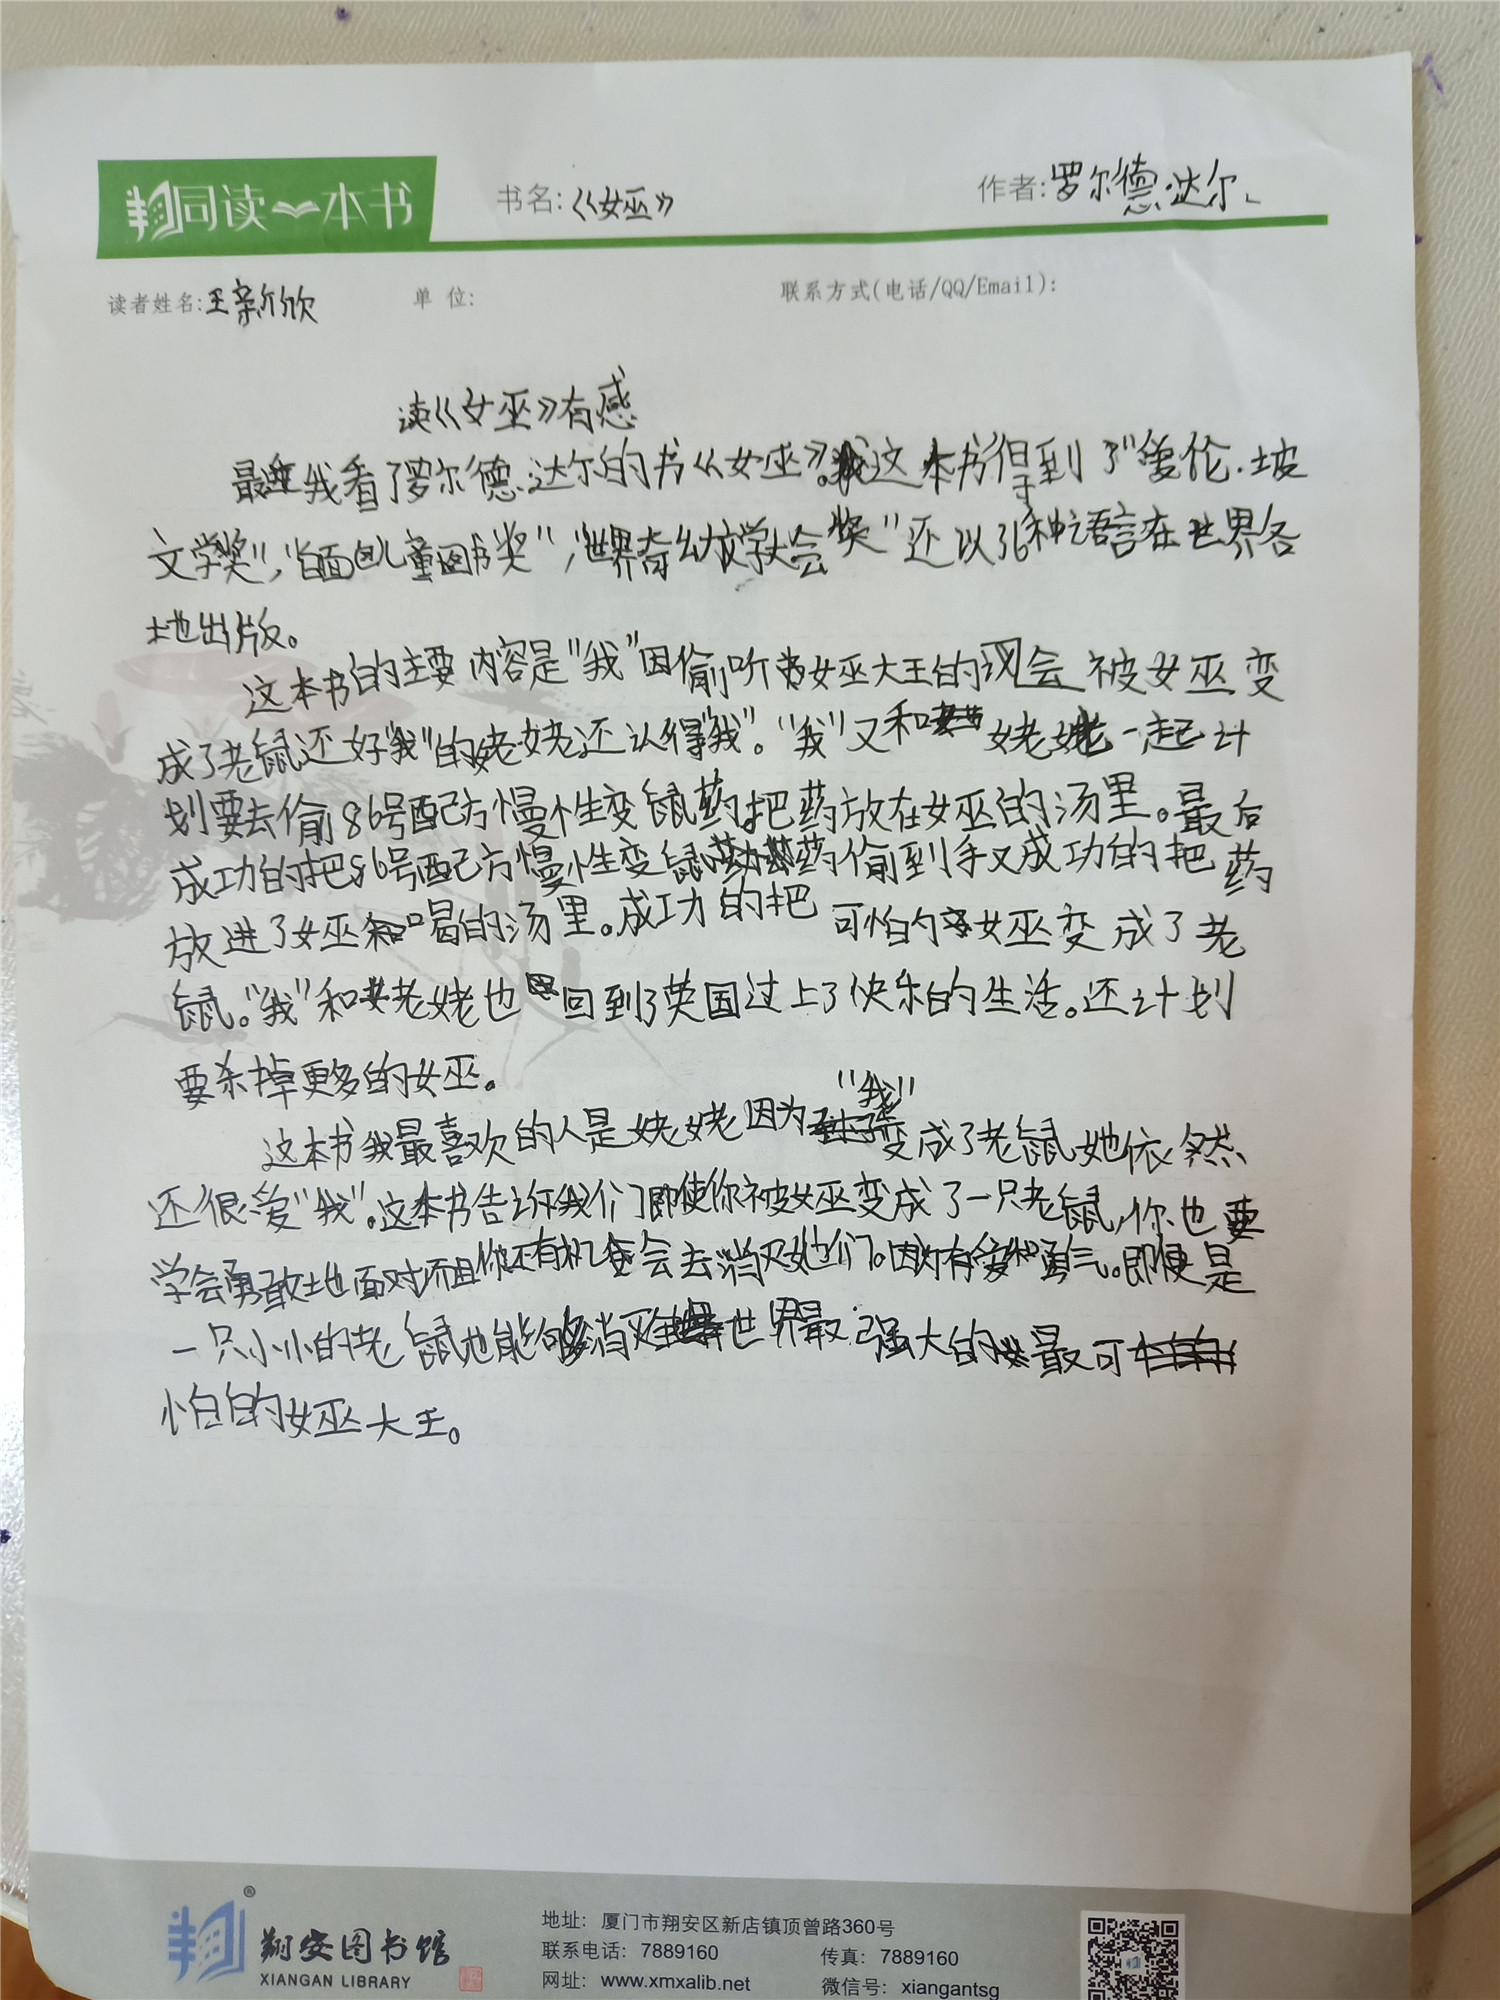 同读一本书
书名:《女巫》
作者:罗尔德·达尔
读者姓名:王新欣
单 位:
联系方式(电话/QQ/Email):
读《女巫》有感
最 我看了罗尔德·达尔的书《女巫》。这本书得到了"爱伦·坡
文学奖","白面包儿童图书奖","世界奇幻文学大会奖"还以36种语言在世界各
地出版。
这本书的主要内容是"我"因偷听女巫大王的 会被女巫变
成了老鼠还好"我"的姥姥还认得"我"。"我"又和姥姥一起计
划要去偷86号配方慢性变鼠药把药放在女巫的汤里。最后
成功的把86号配方慢性变鼠药偷到手又成功的把药
放进了女巫喝的汤里。成功的把可怕的女巫变成了老
鼠。"我"和老姥也回到了英国过上了快乐的生活。还计划
要杀掉更多的女巫。
这本书我最喜欢的人是姥姥因为"我"变成了老鼠她依然
还很爱"我"。这本书告诉我们即使你被女巫变成了一只老鼠,你也要
学会勇敢地面对而且你还有机会去消灭她们。因为有爱和勇气。即便是
一只小小的老鼠也能够消灭世界最强大的最可
怕的女巫大王。
翔安图书馆
XIANGAN LIBRARY
地址: 厦门市翔安区新店镇顶曾路360号
联系电话: 7889160
传真: 7889160
网址: www.xmxalib.net
微信号: xiangantsg